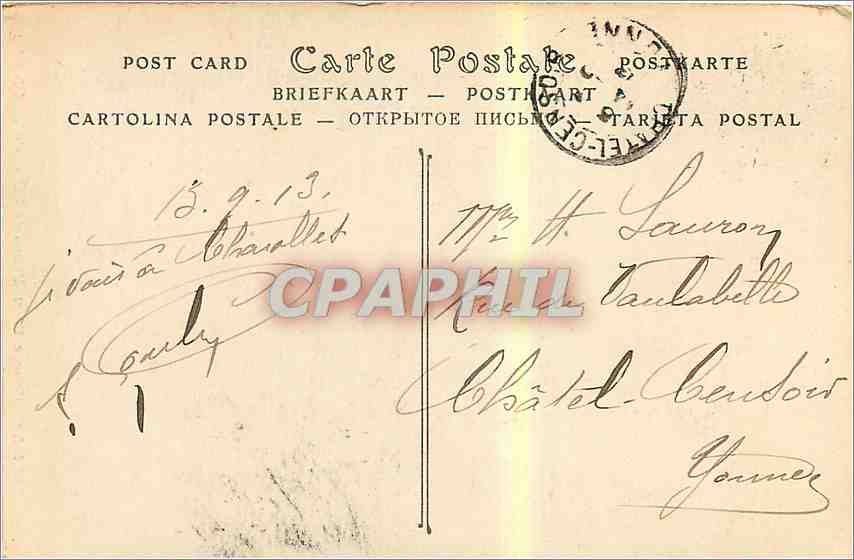 POST CARD Carte Postale POSTKARTE
BRIEFKAART — POSTKAART
CARTOLINA POSTALE — ОТКРЫТОЕ ПИСЬМО — TARJETA POSTAL
CHATEL-CENSOIR
YONNE
13.9.13.
je vais à Charolles
CPAPHIL
H. Lauron
Rue de Vaulabelle
Châtel-Censoir
Yonne